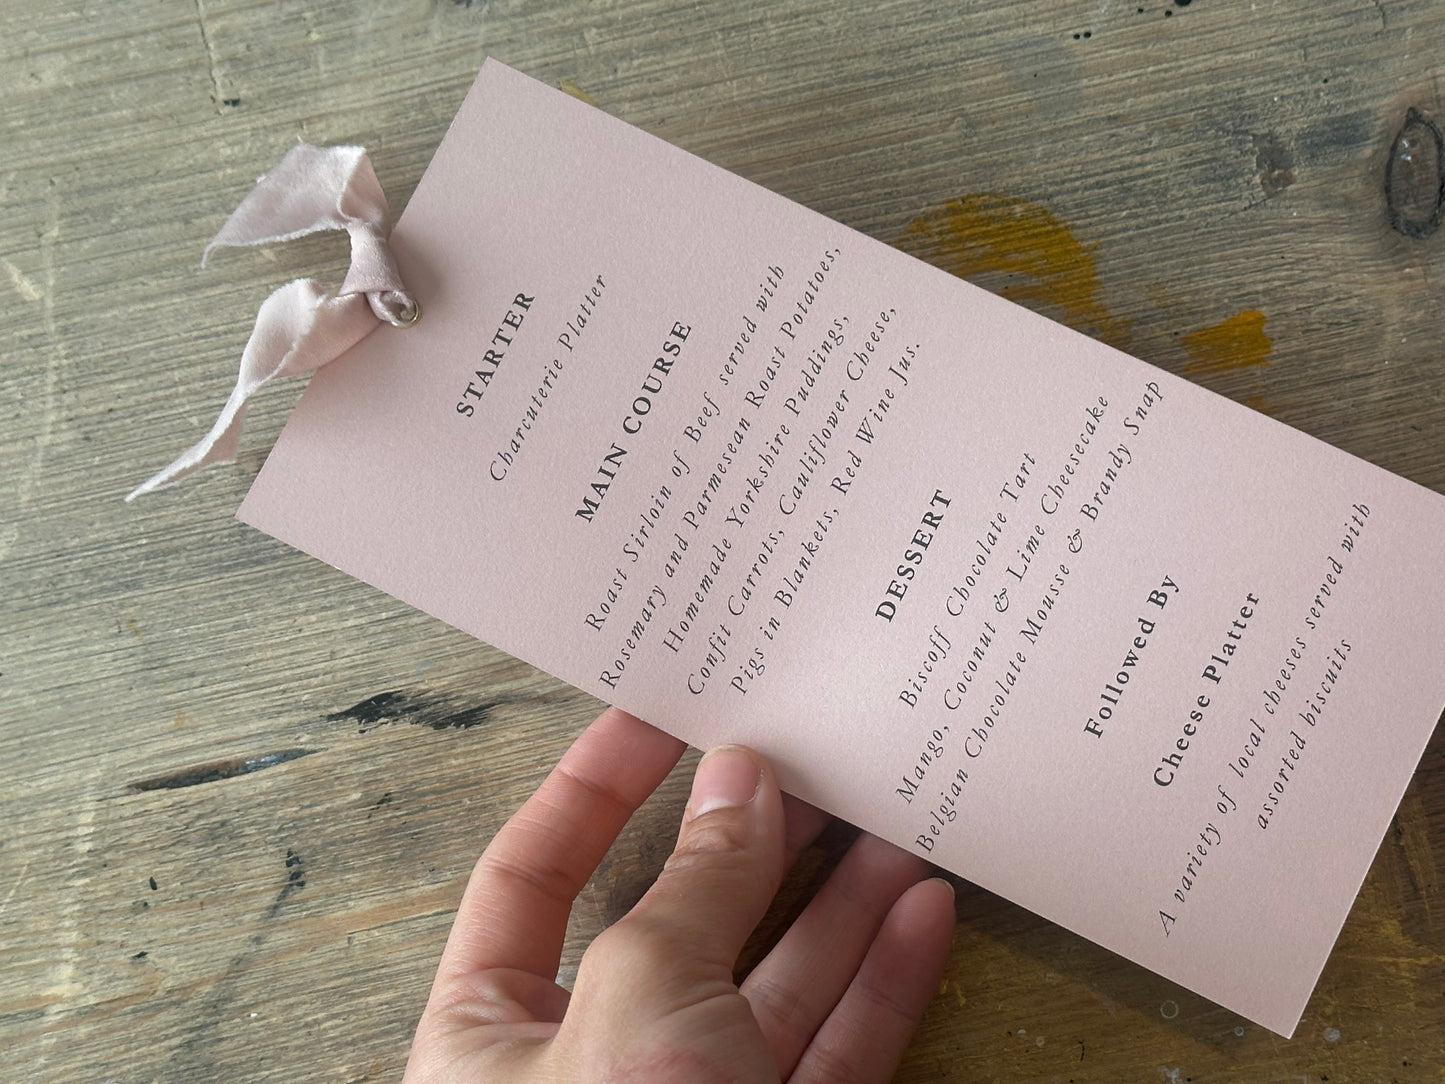 STARTER
Charcuterie Platter
MAIN COURSE
Roast Sirloin of Beef served with
Rosemary and Parmesean Roast Potatoes,
Homemade Yorkshire Puddings,
Confit Carrots, Cauliflower Cheese,
Pigs in Blankets, Red Wine Jus.
DESSERT
Biscoff Chocolate Tart
Mango, Coconut & Lime Cheesecake
Belgian Chocolate Mousse & Brandy Snap
Followed By
Cheese Platter
A variety of local cheeses served with
assorted biscuits